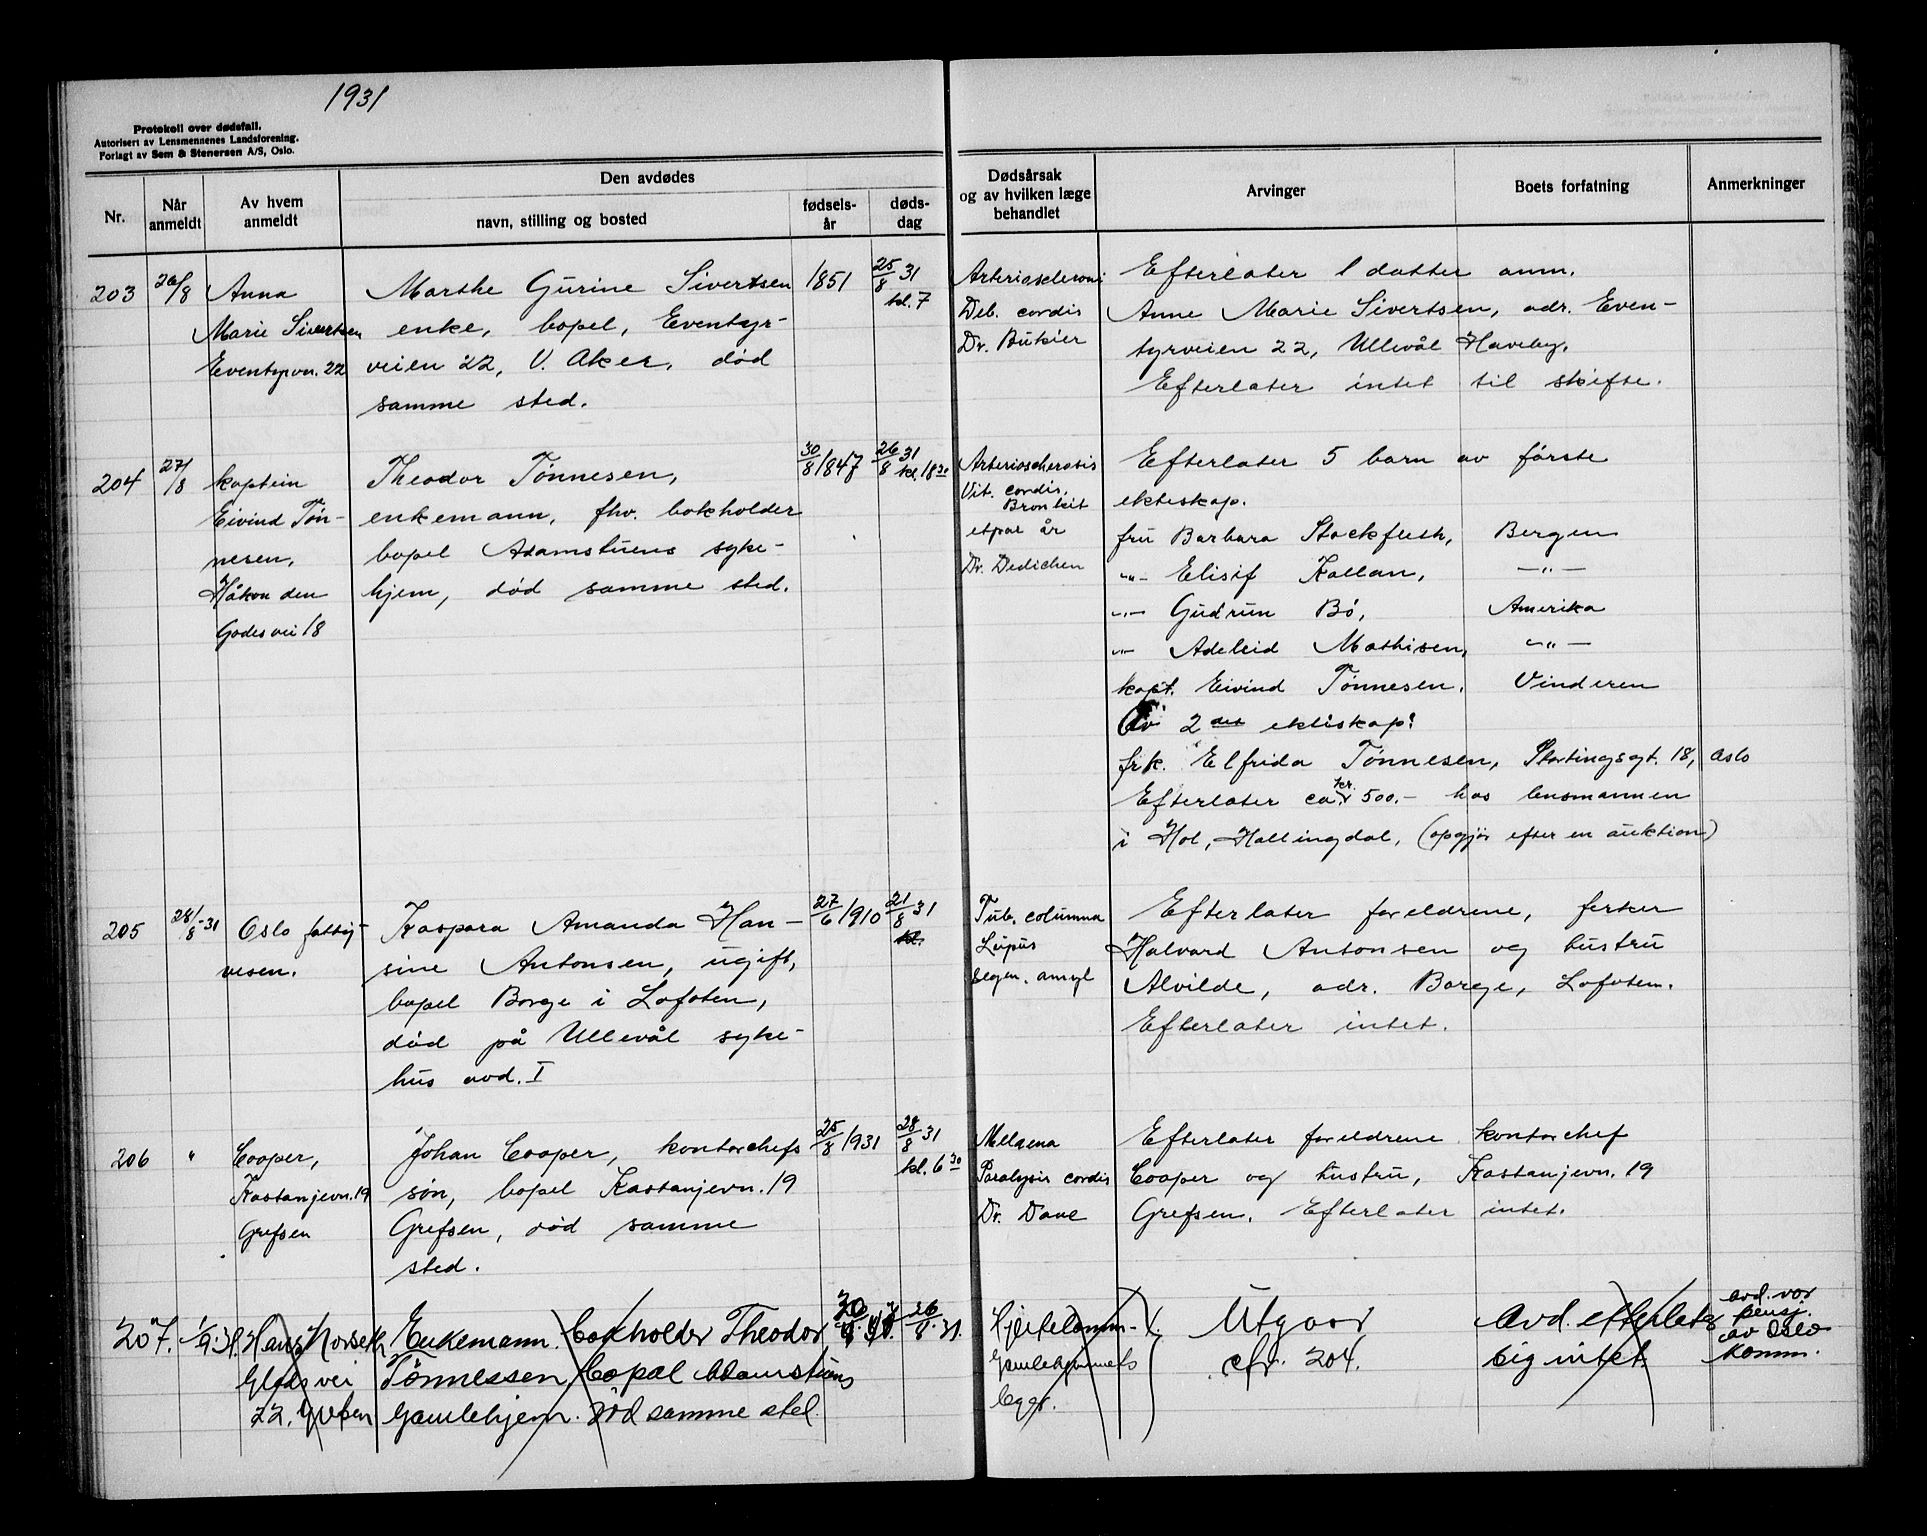 1931
Protokoll over dødsfall.
Autorisert av Lensmennenes Landsforening.
Forlagt av Sem & Stenersen A/S, Oslo.
Nr.
Når anmeldt
Av hvem anmeldt
Den avdødes
navn, stilling og bosted
fødsels-år
døds-dag
Dødsårsak
og av hvilken læge
behandlet
Arvinger
Boets forfatning
Anmerkninger
203 26/8 Anna
Marie Sivertsen
Eventyrvn. 22
Marthe Gurine Sivertsen
enke, bopel, Eventyr-
veien 22, V. Aker, død
samme sted.
1851
25/8 31
kl. 7
Arteriosclerosi
Deb. cordis
Dr. Bukier
Efterlater 1 datter anm.
Anne Marie Sivertsen, adr. Even-
tyrveien 22, Ullevål Haveby.
Efterlater intet til skifte.
204 27/8 kaptein
Eivind Tøn-
nesen,
Håkon den
Godes vei 18
Theodor Tønnesen,
enkemann, fhv. bokholder
bopel Adamstuens syke-
hjem, død samme sted.
30/8 1847
26/8 31
kl. 18 30
Arterioscherosis
Vit. cordis,
Bronkit
etpar år
Dr. Dedichen
Efterlater 5 barn av første
ekteskap.
fru Barbara Stockfleth, Bergen
-"- Elisif Kallan, -"-
-"- Gudrun Bö, Amerika
-"- Adeleid Mathisen, -"-
kapt. Eivind Tønnesen. Vinderen
Av 2det ekteskap:
frk. Elfrida Tønnesen, Stortingsgt. 18, Oslo
Efterlater ca. kr. 500.- hos lensmannen
i Hol, Hallingdal, (opgjør efter en auktion)
205 28/8-31 Oslo fattig-
vesen.
Kaspara Amanda Han-
sine Antonsen, ugift,
bopel Borge i Lofoten,
død på Ullevål syke-
hus avd. I
27/6 1910
21/8 31
kl.
Tub. columna
Lupus
Degen. amyl
Efterlater foreldrene, fisker
Halvard Antonsen og hustru
Alvilde, adr. Borge, Lofoten.
Efterlater intet.
206 " Cooper,
Kastanjevn. 19
Grefsen
Johan Cooper, kontorchefs
søn, bopel Kastanjevn. 19
Grefsen, død samme
sted.
25/8 1931
28/8 31
kl. 6 30
Melaena
Paralysis cordis
Dr. Dave
Efterlater foreldrene kontorchef
Cooper og hustru, Kastanjevn. 19
Grefsen. Efterlater intet.
207. 1/9.31. Hans Norseth
vei
22, Grefsen
Enkemann. Bokholder Theodor
Tönnessen, Bopæl Adamstuens
Gamlehjem. Död samme sted.
30/8
26/8. 31.
Gamlehjemmets
læge.
Utgaar
cfr. 204.
Avd. efterlater
sig intet.
avd. var
pensj.
av Oslo
komm.